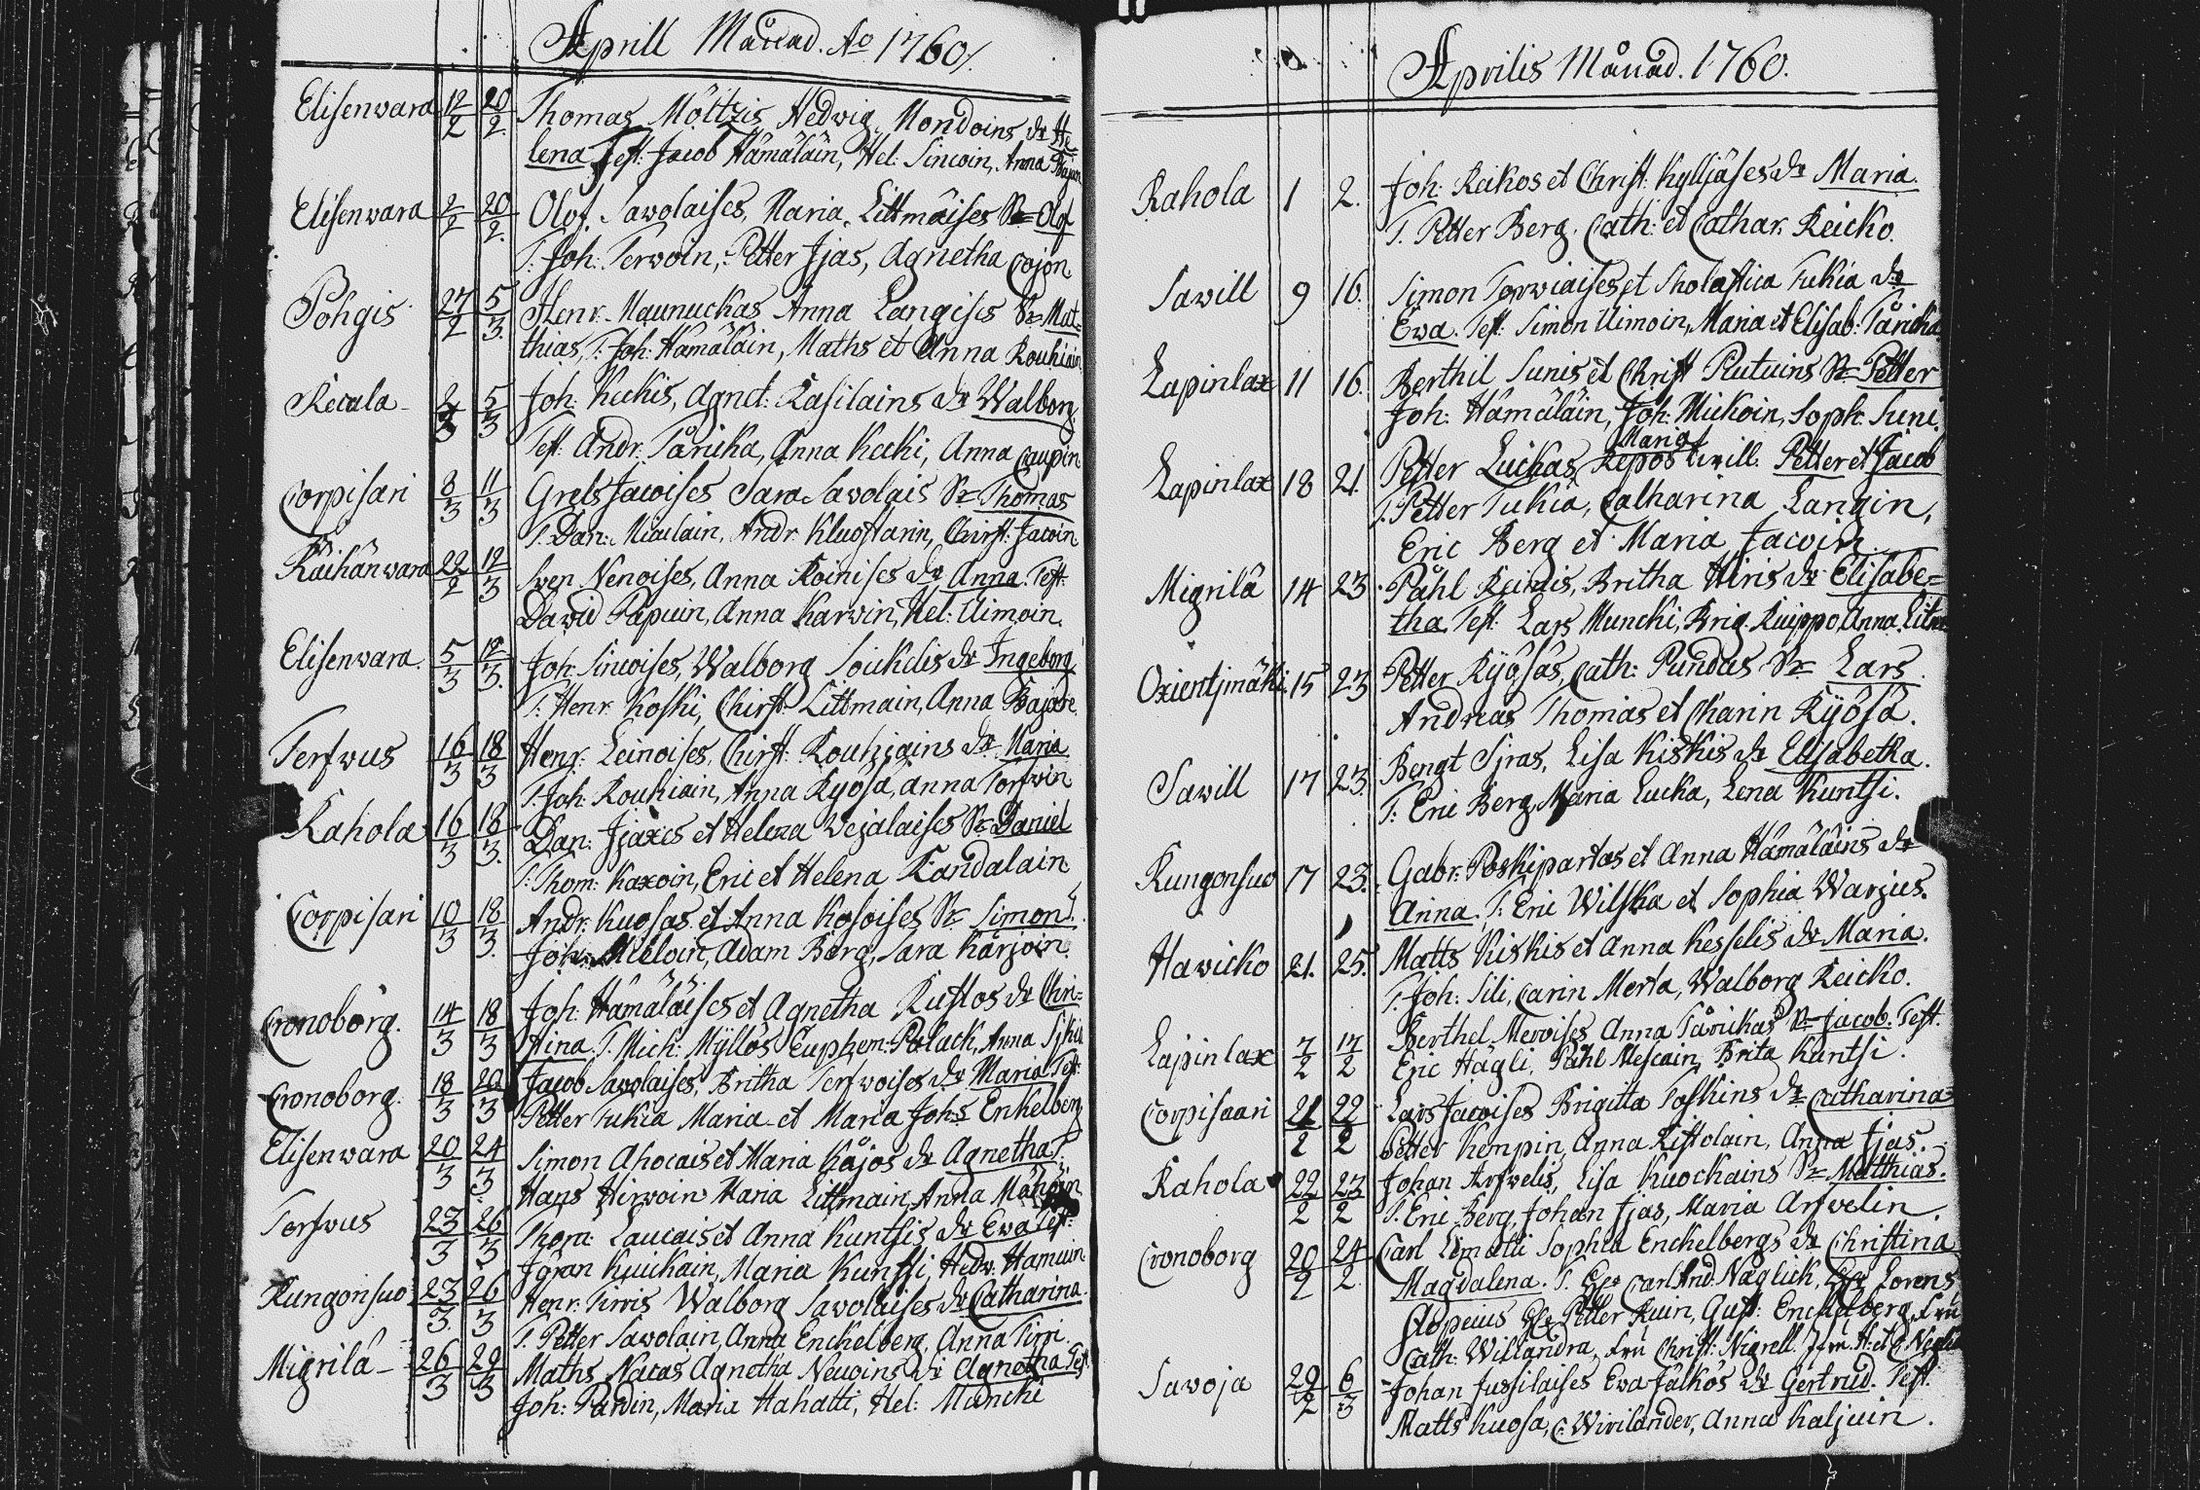 Aprill Månad. Ao 1760.
Elisenwara 12/2 20/2 Thomas Möttzis, Hedwig Mondoins dr He
lena Test: Jacob Hämäläin, Hel: Sinwin, Anna
Elisenwara 2/2 20/2 Olof Sawolaises, Maria Littmäises Sn Olof
T: Joh: Terwoin, Petter Ijas, Agnetha Cojon
Pohgis 27/2 5/3 Henr. Maunuckas Anna Langises Sn Mat=
thias, T: Joh: Hämäläin, Maths et Anna Rouhiain
5/3 Joh: Keckis, Agnet: Kasilains dr Walborg
Test: Andr: Tåricka, Anna Kecki, Anna Caupin
Corpisari 8/3 11/3 Grels Jacoises Sara Savolais Sn Thomas
T. Dan: Andr. Kluostarin, Chirst: Jacoin
Räihänwara 22/2 12/3 Sven Nenoises, Anna Koinises dr Anna. Test:
David Papuin, Anna Karwin, Hel: Uimoin.
Elisenwara. 5/3 12/3 Joh: Sinwises, Walborg Soukelis dr Ingeborg
T: Henr: Koski, Chirst: Littmain, Anna Bajar
Terfwus 16/3 18/3 Henr: Leinoises, Chirst: Rouhiains dr Maria
T: Joh: Rouhiain, Anna Kyösä, Anna Torfwin
Rahola 16/3 18/3 Dan: Ijaxes et Helena Wejalaises Sn Daniel
T: Thom: Kaxoin, Eric et Helena Kandalain
Corpisari 10/3 18/3 Andr: Kuosas et Anna Kosoises Sn Simon T.
Joh: Adam Berg, Sara Karjoin
Cronoborg. 14/3 18/3 Joh: Hämäläises et Agnetha Kustos dr Chri=
stina. T: Mich: Myllös Euphem: Polack, Anna
Cronoborg. 18/3 20/3 Jacob Savolaises, Britha Terfwoises dr Maria Test:
Petter Tukia Maria et Maria Johs Enkelberg
Elisenwara 20/3 24/3 Simon Ahocais et Maria Kåjos dr Agnetha T.
Hans Hirwoin Maria Littmain, Anna
Terfwus 23/3 26/3 Thom: Laucais et Anna Kuntsis dr Ewa Test:
Jöran Kuickain, Maria Kuntsi, Hedv. Hamuin
Kungonsuo 23/3 26/3 Henr: Tirris Walborg Savolaises dr Catharina.
T. Petter Savolain, Anna Enckelberg, Anna Tirri.
Migrilä 26/3 29/3 Maths Nacas Agnetha Nevoins dr Agnetha Test
Joh: Pardin, Maria Hahatti, Hel: Munckì
Aprilis Månad. 1760.
Rahola 1 2. Joh: Reikos et Christ: Kylljäses dr Maria.
T. Petter Berg. Cath: et Cathar. Reicko.
Sawill 9 16. Simon Torwiaises et Sholastica Tukia dr
Ewa. Test: Simon Uimoin, Maria et Elisab: Tåricka
Lapinlax 11 16. Berthil Sunis et Christ Rutuins Sn Petter
Joh: Hämäläin, Joh: Mickoin, Soph: Suni.
Maria
Lapinlax 18 21. Petter Luckas Repos twill. Petter et Jacob
T. Petter Tukia, Catharina Langin,
Eric Berg et Maria Jacoin
Migrilä 14 23 Påhl Britha Hiris dr Elisabe=
tha Test: Lars Muncki, Brig. Kuippo, Anna
15 23 Petter Kyösäs, Cath: Pundas Sn Lars
Andreas Thomas et Charin Kyösä.
Sawill 17 23. Bengt Ijras, Lisa Kiskis dr Elisabetha.
T: Eric Berg, Maria Lucka, Lena Kuntsi.
Kungonsuo 17 23. Gabr: Poskipartas et Anna Hämäläins dr
Anna. T: Eric Wilska et Sophia Warjus.
Hawicko 21. 25. Matts Kiskis et Anna Kesselis dr Maria.
T. Joh: Sili, Carin Merta, Walborg Reicko.
Lapinlax 7/2 17/2 Berthel Mervises Anna Tårickas Sn Jacob. Test.
Eric Hägli, Påhl Mescain, Brita Kuntsi.
Corpisaari 21/2 22/2 Lars Jacoises Brigitta Toskins dr Catharina
Petter Kempin, Anna Ristolain, Anna Ijas.
Rahola 22/2 23/2 Johan Arfvelis, Lisa Kuockains Sn Matthias.
T. Eric Berg, Johan Ijas, Maria Arfvelin.
Cronoborg 20/2 24/2 Carl Limatti Sophia Enckelbergs dr Christina
Magdalena. T. Carl And. Näglick, Lorens
Alopeius Petter Ruin, Gust: Enckelberg, Fru
Cath: Willandra, Fru Christ: Nigrell.
Savoja 29/2 6/3 Johan Jussilaises Ewa Jälkös dr Gertrud. Test.
Matts Kuosa, C: Wirilander, Anna Kaljuin.